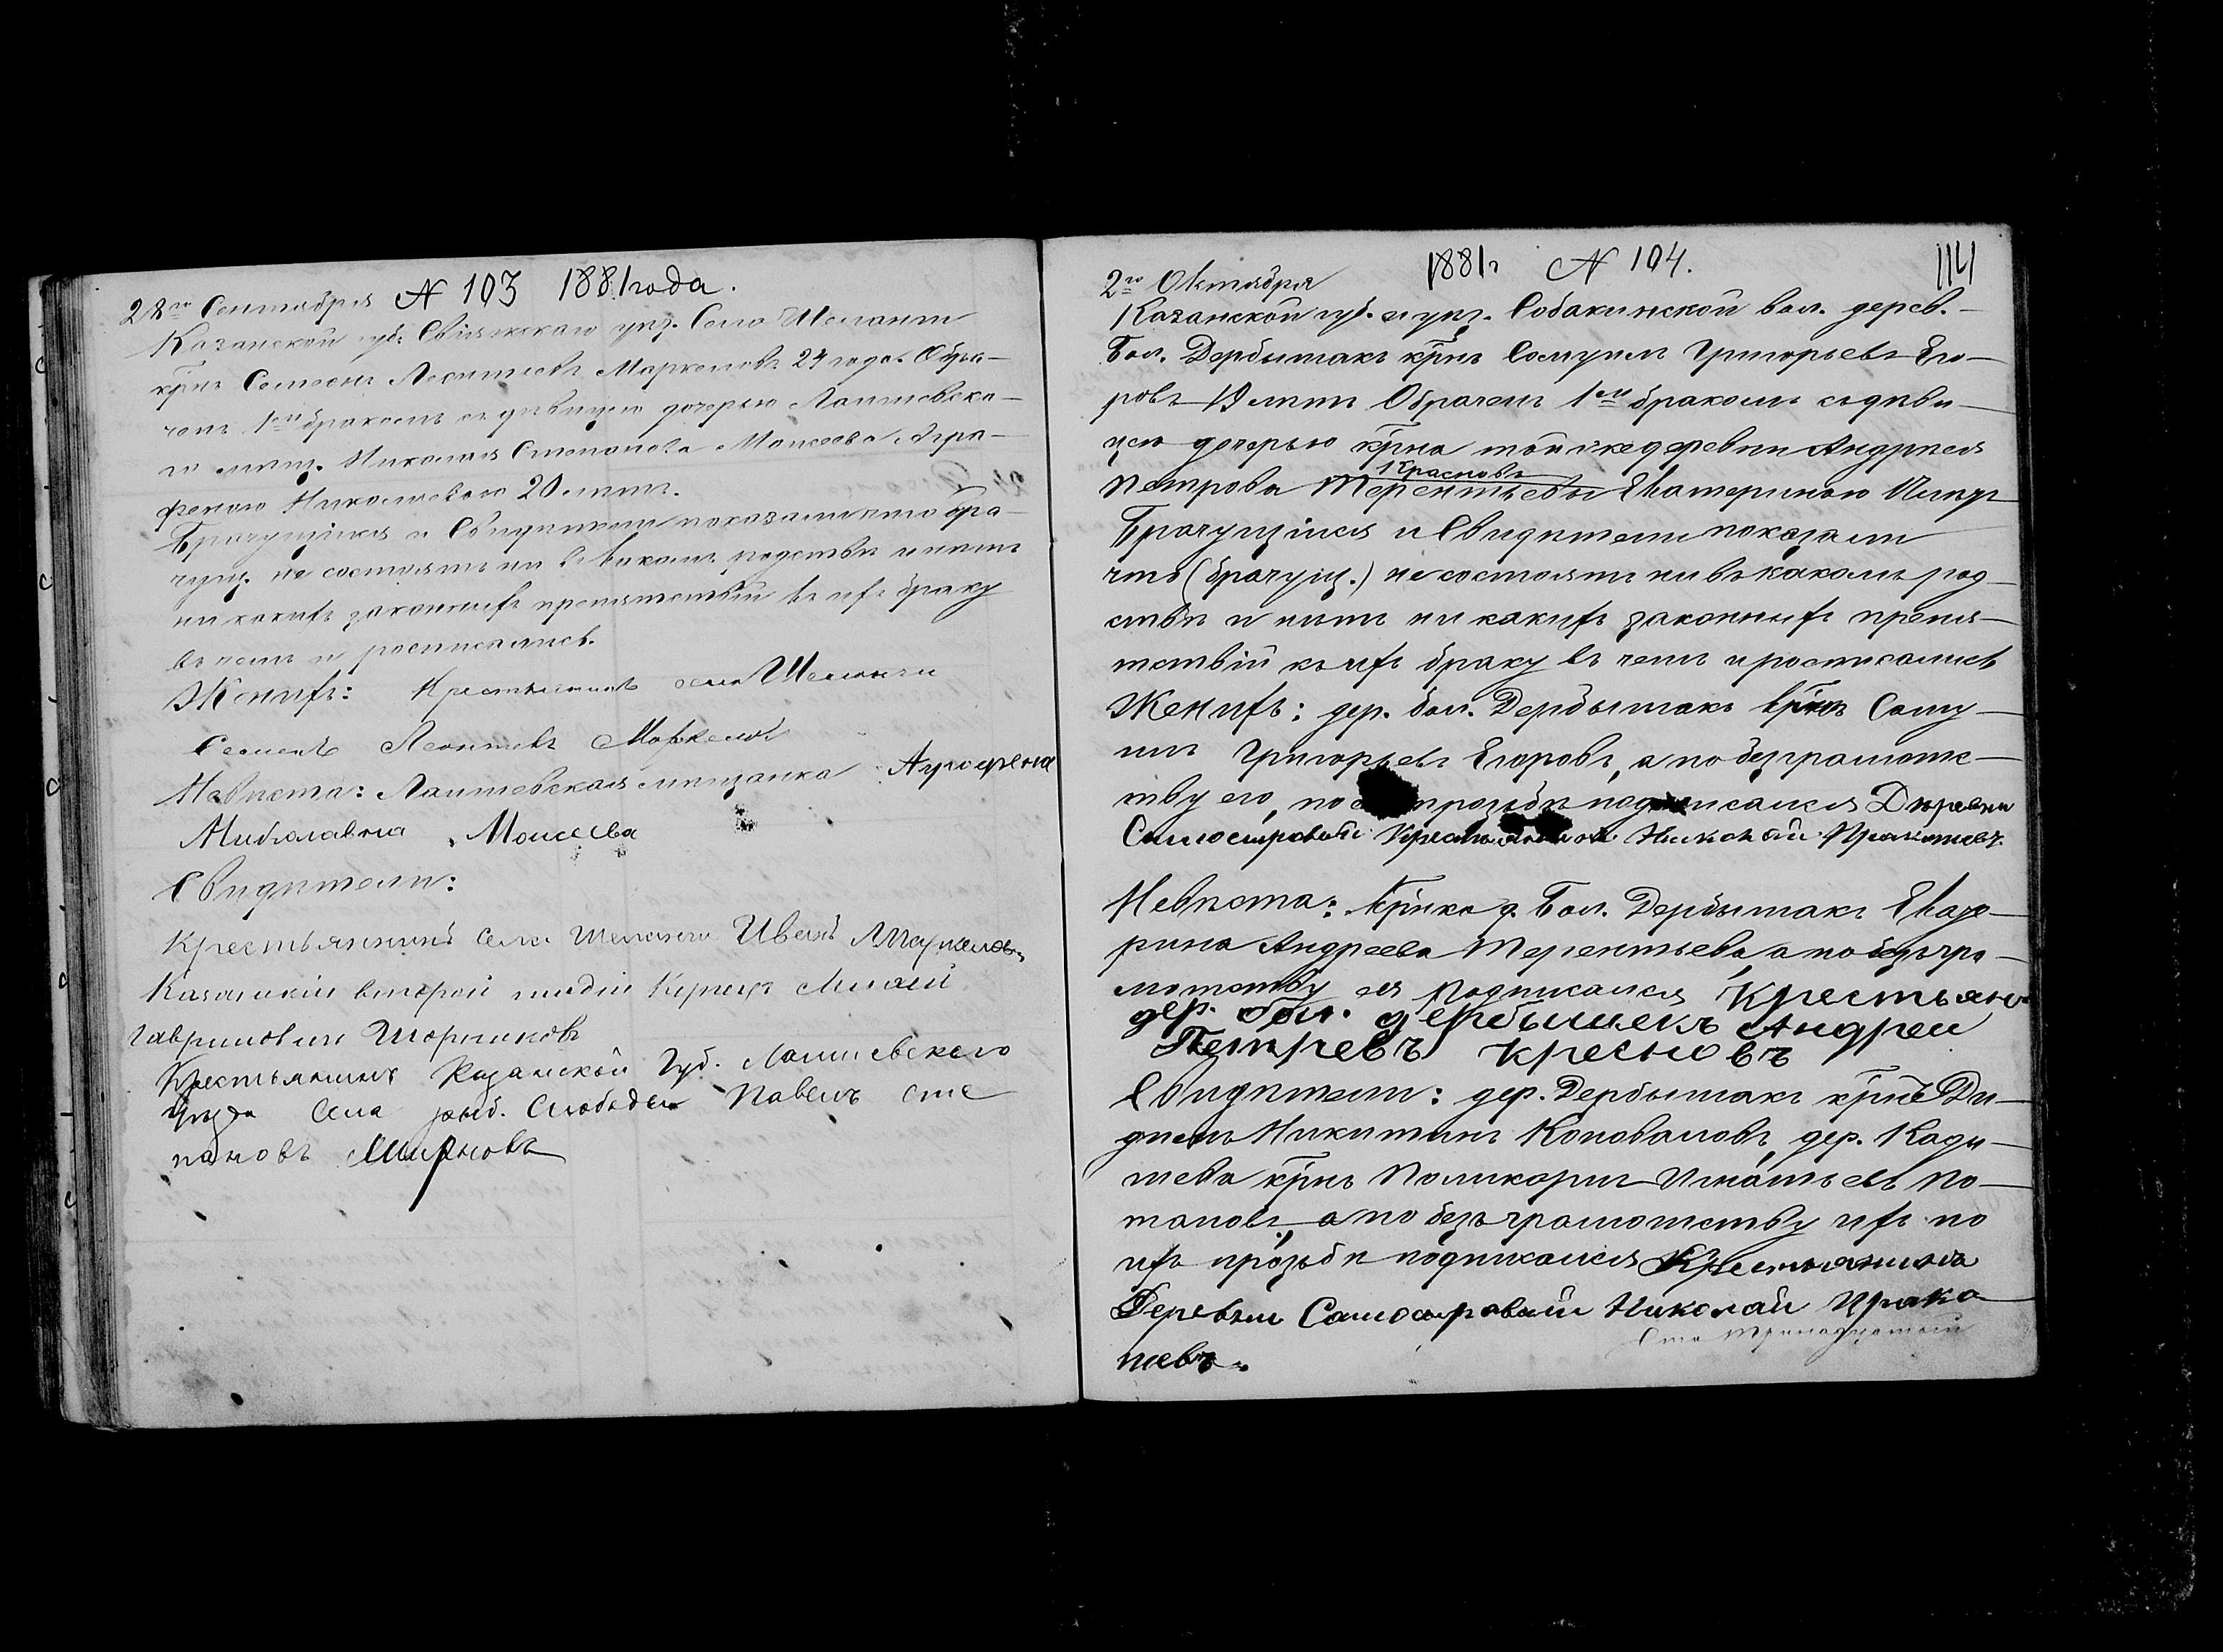 № 103 1881 года.
28го Сентября
Казанской губ. Свіяжскаго уѣз. Село Шеланги
крнъ Семеонъ Леонтьевъ Маркеловъ 24 года. Обра-
ченъ 1мъ бракомъ съ дѣвицею дочерью Лаишевска-
го мѣщ. Николая Степанова Моисеева Агра-
феною Николаевою 20 лѣтъ.
Брачущіися и Свидѣтели показали что бра-
чущ. не состоятъ ни въ какомъ родствѣ и нѣтъ
ни какихъ законныхъ препятствій къ ихъ браку
въ чемъ и росписались.
Женихъ: Крестьянинъ села Шеланги
Семенъ Леонтьевъ Маркеловъ
Невѣста: Лаишевская мѣщанка Аграфена
Николавна Моисеева
Свидѣтели:
Крестьянинъ села Шеланги Иванъ Маркеловъ
Казанскій второй гилдіи Купецъ
Гавриловичъ
Крестьянинъ Казанской Губ. Лаишевского
уѣзда Села рыб. Слободы Павелъ Сте
пановъ Мирновъ
1881г № 104. 114
2го Октября
Казанской губ. и уѣз. Собакинской вол. дерев.
Бол. Дербышакъ крнъ Самуилъ Григорьевъ Его-
ровъ 19 лѣтъ Обраченъ 1мъ бракомъ съ дѣви-
цею дочерью крна той же деревни Андрея
Краснова
Петрова Терентьева Екатериною
Брачущіися и Свидѣтели показали
что (брачущ.) не состоятъ ни въ какомъ род-
ствѣ и нѣтъ ни какихъ законныхъ препя-
тствій къ ихъ браку въ чемъ и росписались
Женихъ: дер. бол. Дербышакъ крнъ Саму-
илъ Григорьевъ Егоровъ, а по безграмотс-
тву его, по прозьбѣ подписался Дѣревни
Самосыровой Крестьянинъ Николай
Невѣста: Крнка д. Бол. Дербышакъ Екате-
рина Андреева Терентьева, а по безъгра-
мотству ея подписался Крестьян
дер. бол. дербышекъ Андреи
Петревъ кресновъ
Свидѣтели: дер. Дербышакъ крнъ Ди-
Никитинъ Коноваловъ, дер. Кады-
шева крнъ Поликарпъ Игнатьевъ По-
таповъ, а по безъграмотству ихъ по
ихъ прозьбѣ подписался Крестьянинъ
Деревни Самосыровай Николай Ирако
невъ.
Сто тринадцатый